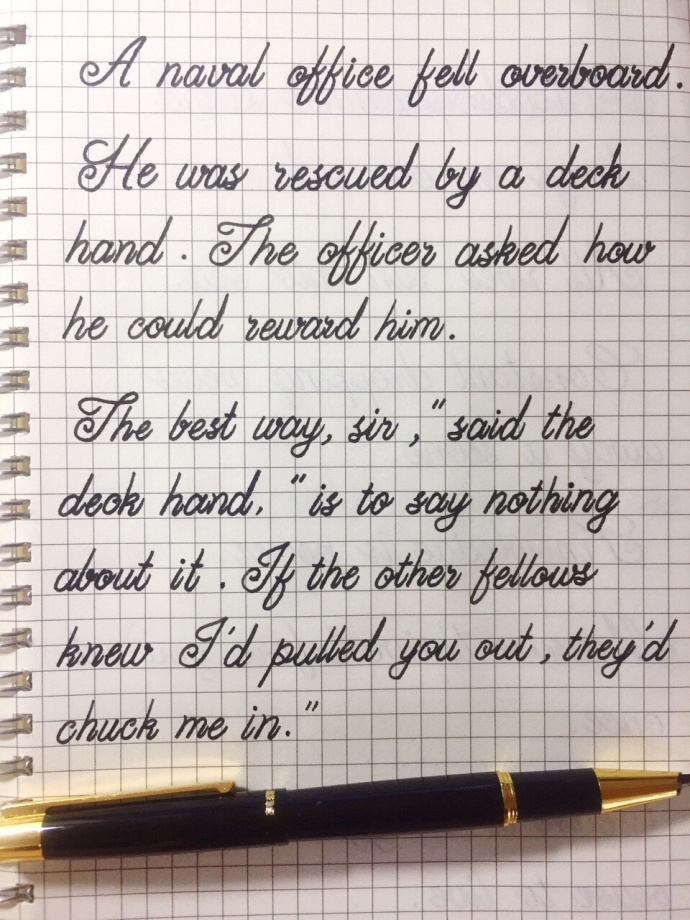 A naval office fell overboard.
He was rescued by a deck
hand. The officer asked how
he could reward him.
The best way, sir," said the
deck hand. "is to say nothing
about it. If the other fellows
knew I'd pulled you out, they'd
chuck me in."